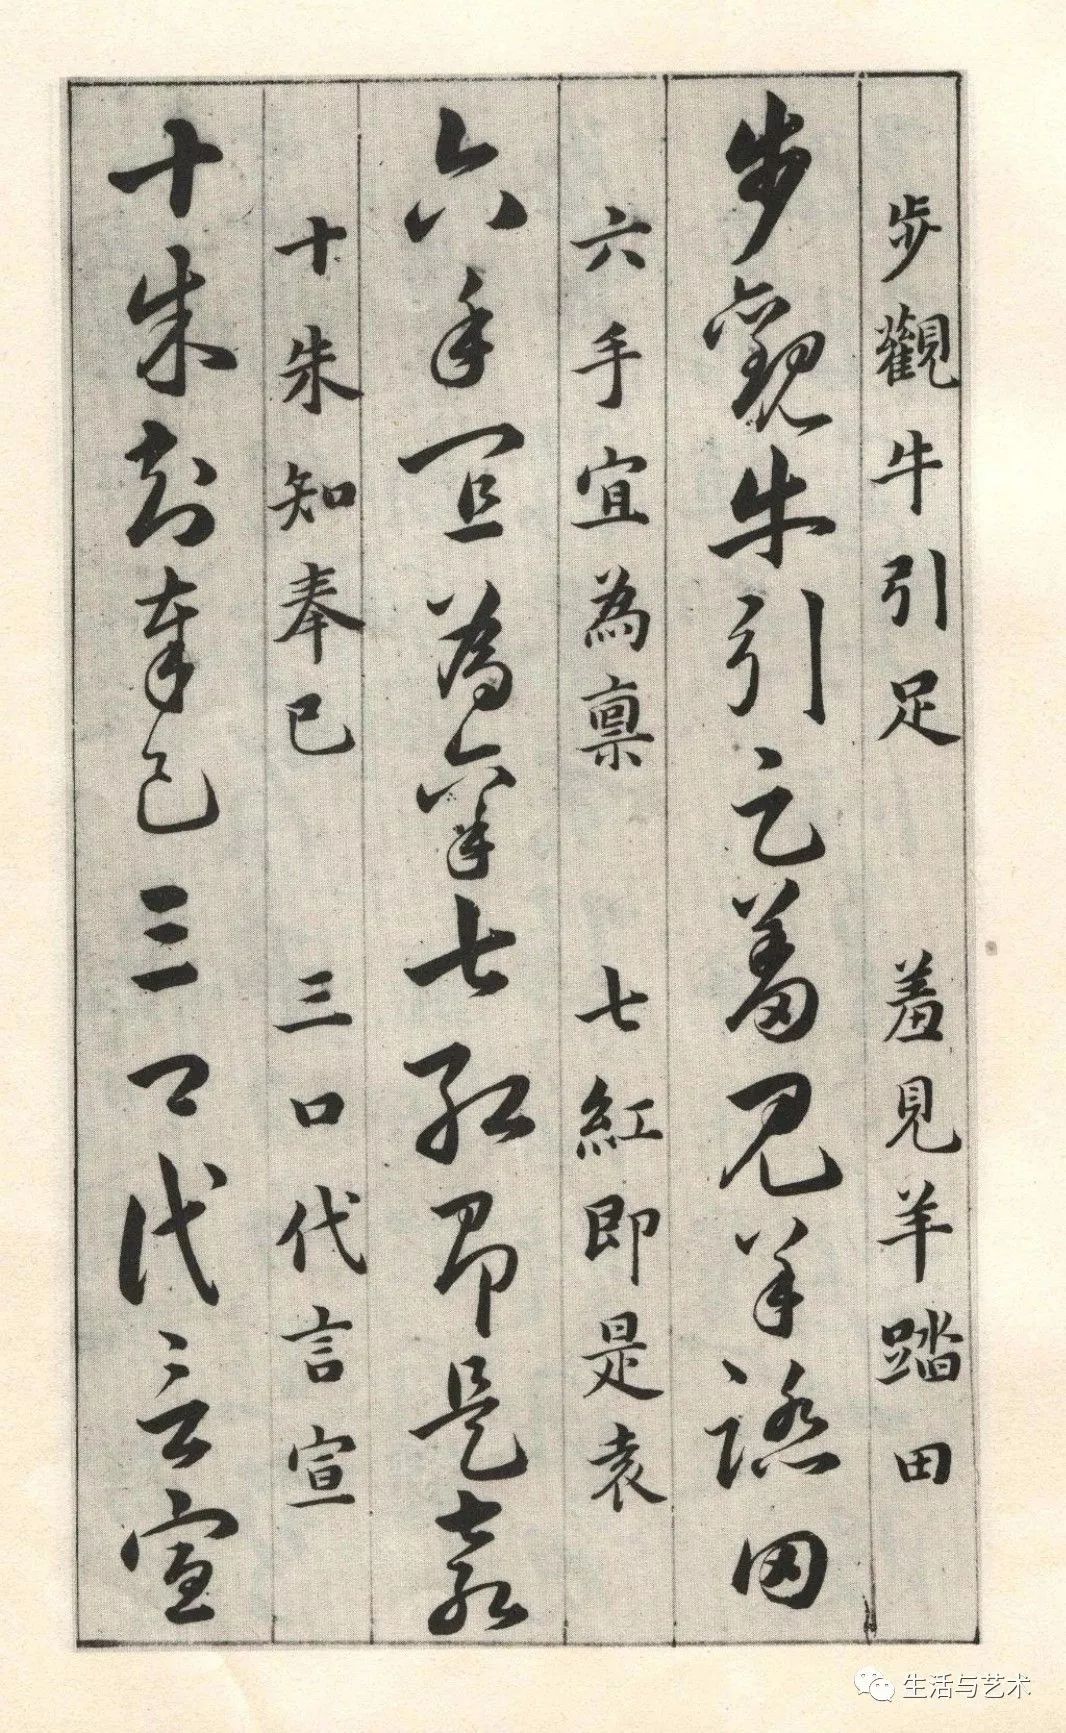 步觀牛引足 羞見羊踏田
步觀牛引足羞見羊踏田
六手宜為禀 七紅即是袁
六手宜為禀七紅即是袁
十朱知奉已 三口代言宣
十朱知奉已三口代言宣
生活与艺术